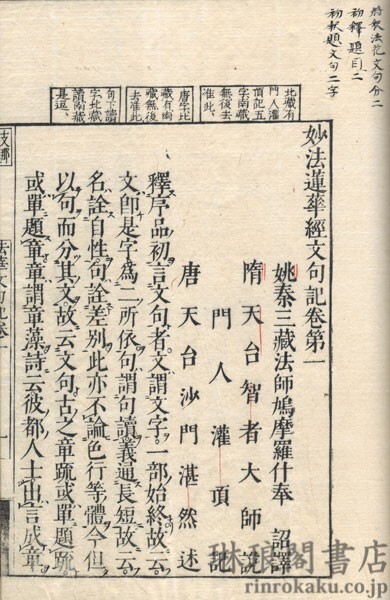 将釈法花文句分二
初釈題目二
初釈題文句二字
北藏有
門人灌
頂記五
字南藏
無後去
准此、
唐字比
藏有南
藏無後
去准此
句下讀
字北藏
讀南藏
是逗、
妙法蓮華經文句記卷第一
姚秦三藏法師鳩摩羅什奉 詔譯
隋天台智者大師說
門人灌頂記
唐天台沙門湛然述
釋序品初言文句者。文謂文字。一部始終故云
文即是字爲二所依句謂句讀義通長短故云
名詮自性。句詮差別此亦不論色行等體今但
以句而分其文。故云文句。古之章疏或單題疏
或單題章章謂章藻詩云彼都人士出言成章
支那
法華文句記卷一
一
琳琅閣書店
rinrokaku.co.jp